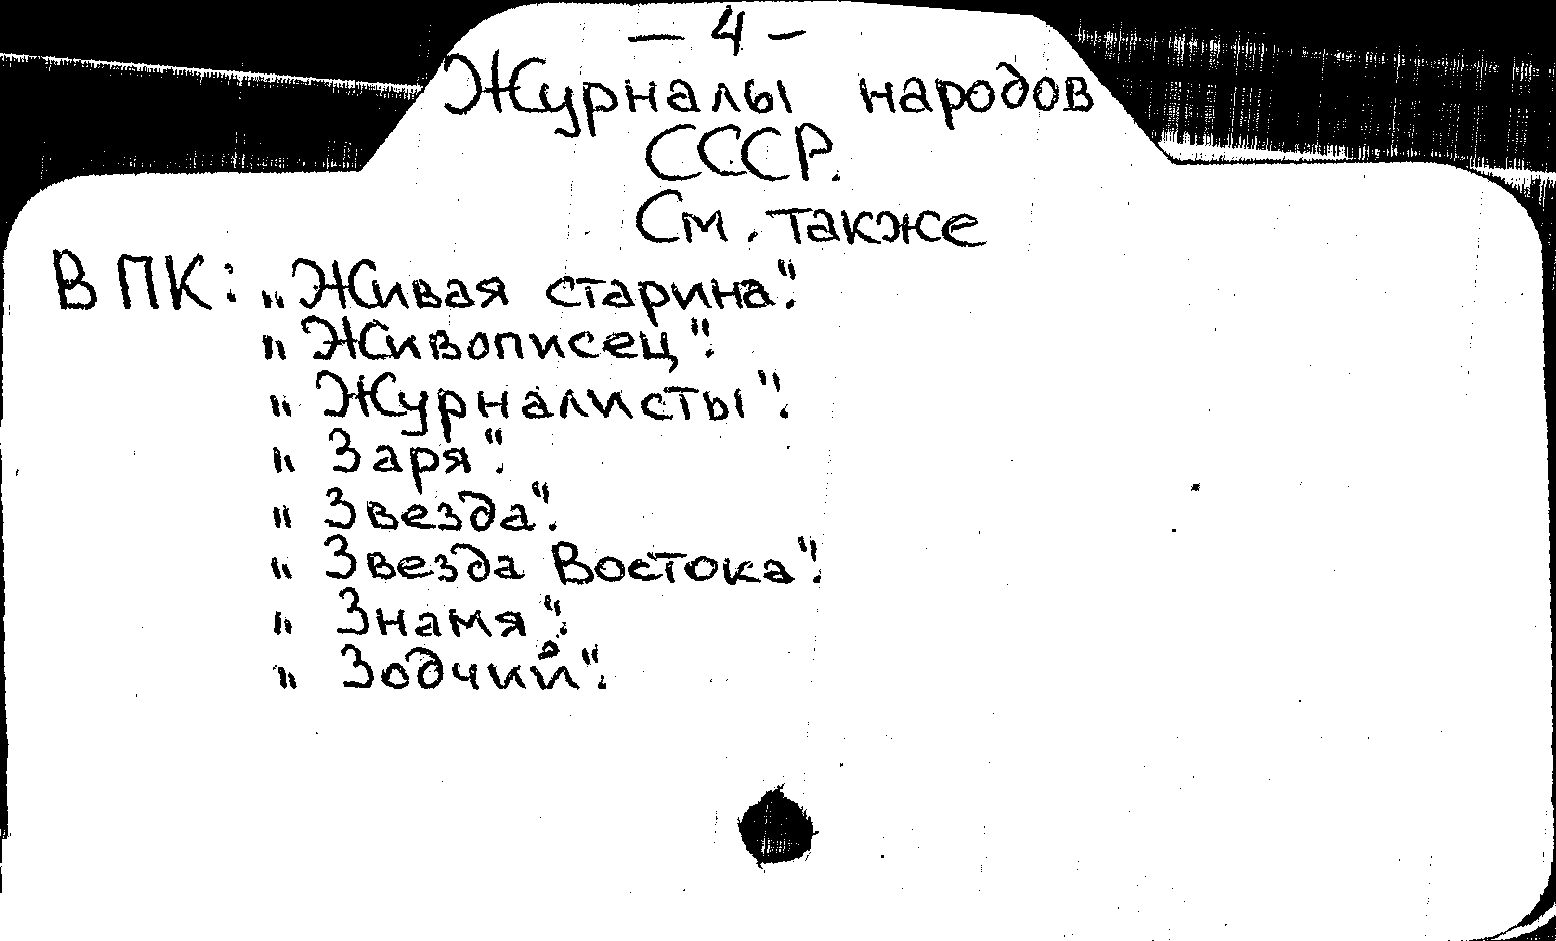 — 4 —
Журналы народов
СССР.
См. также
В ПК: „Живая старина".
„Живописец".
„Журналисты".
„Заря".
„Звезда".
„Звезда Востока".
„Знамя".
„Зодчий".